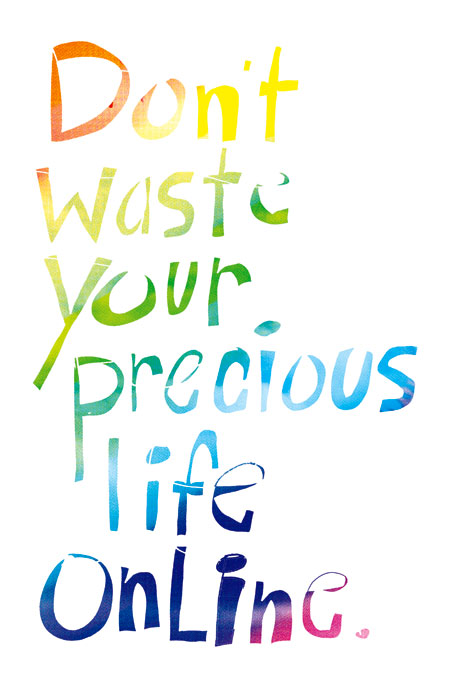 Don't
waste
your
precious
life
OnLine.